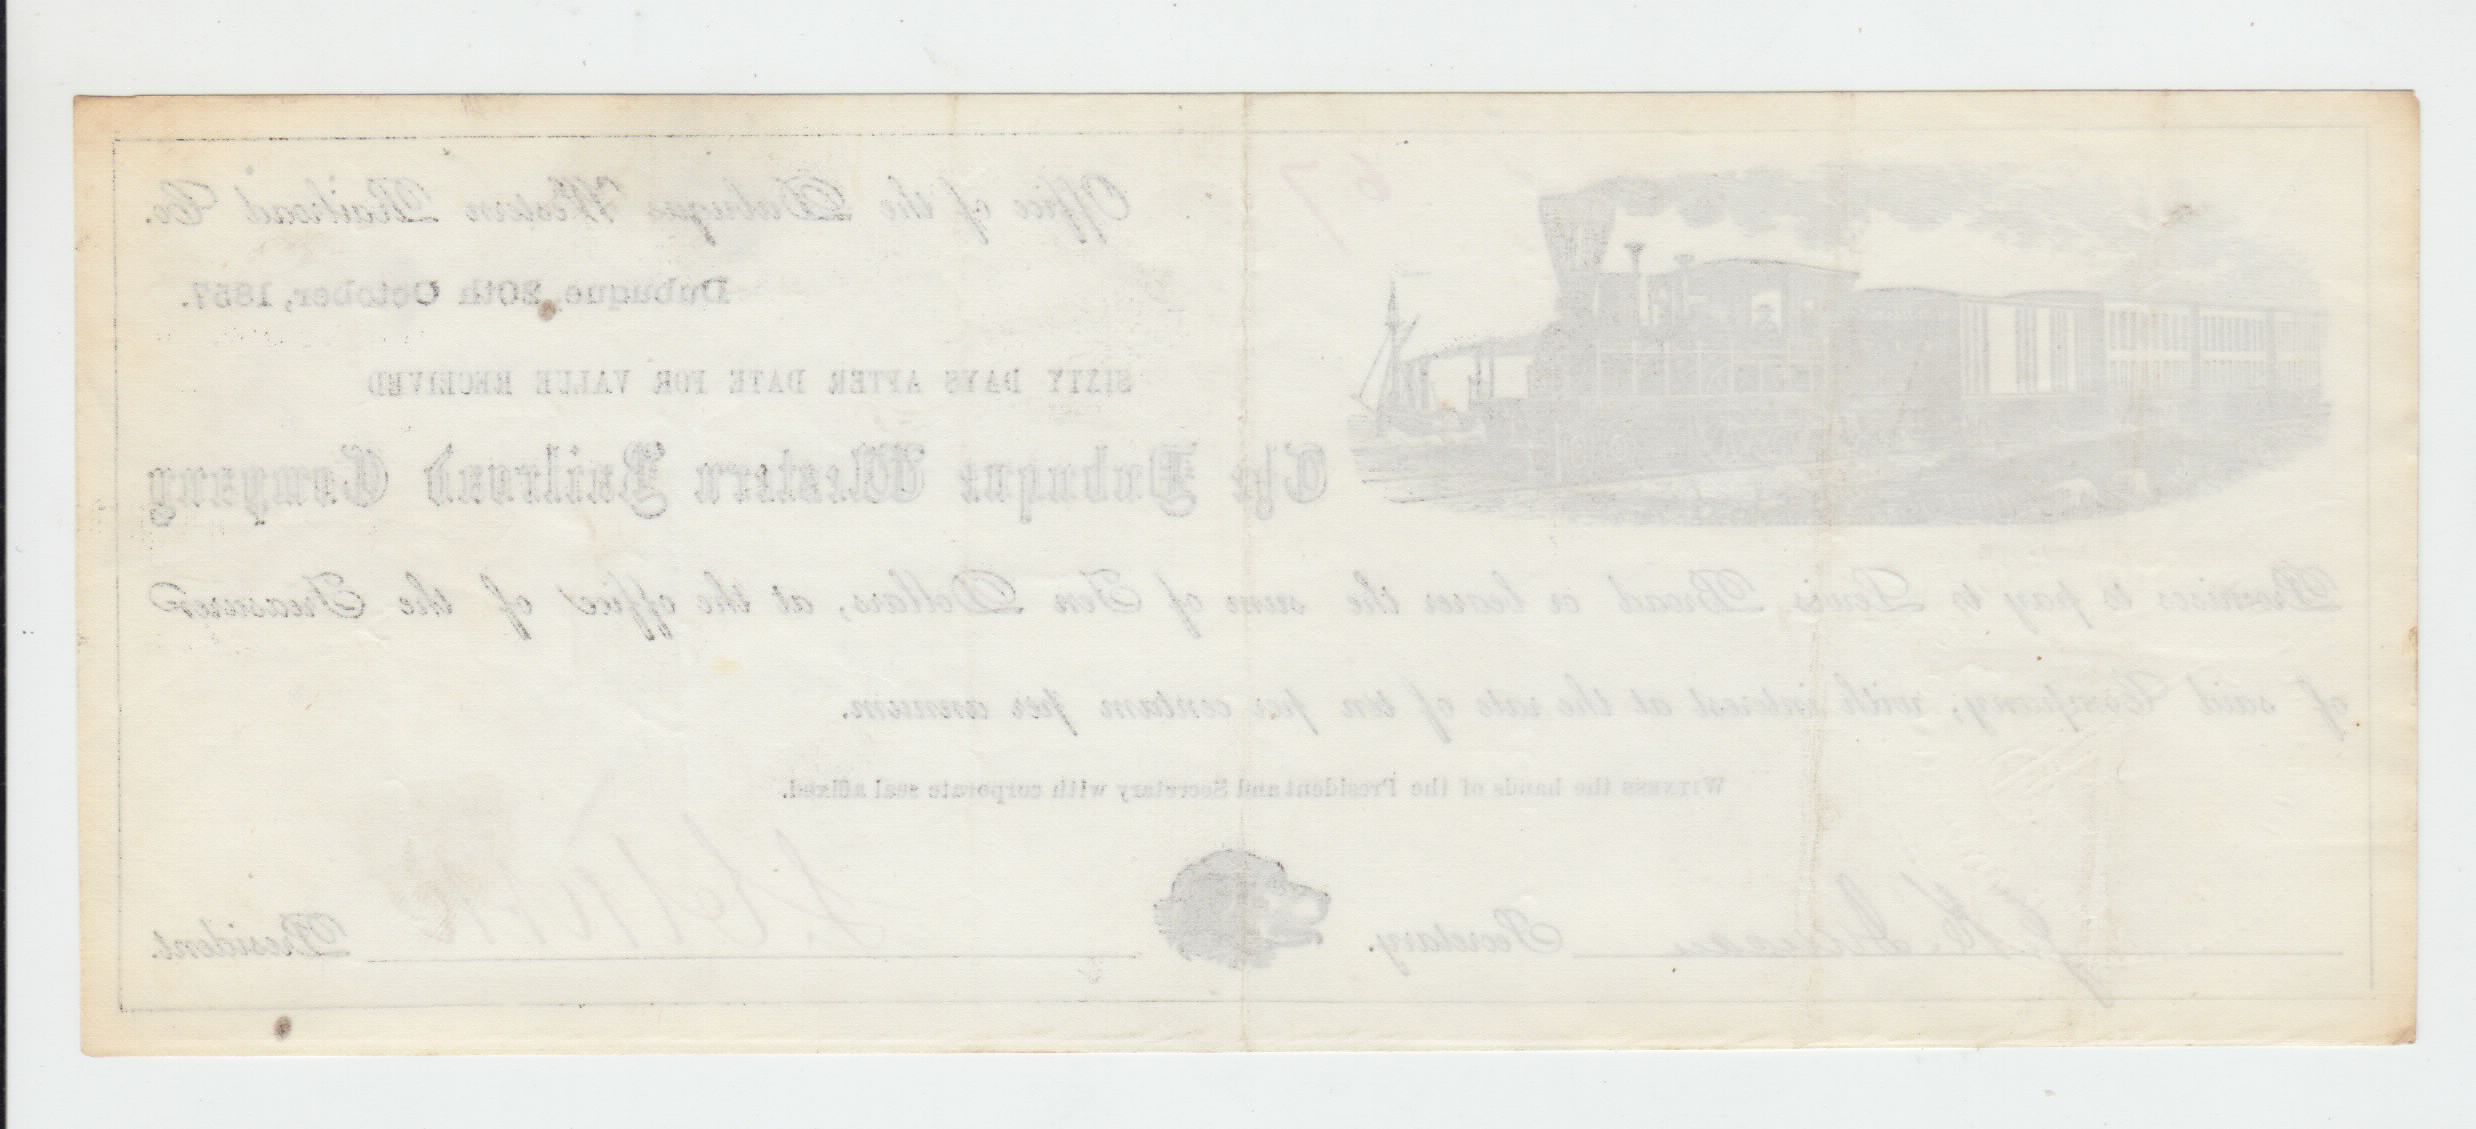 67
Office of the Dubuque Western Railroad Co.
Dubuque, 20th October, 1857.
SIXTY DAYS AFTER DATE FOR VALUE RECEIVED
The Dubuque Western Railroad Company
Promises to pay to Lewis Broad or bearer the sum of Ten Dollars, at the office of the Treasurer
of said Company, with interest at the rate of ten per centam per annum.
WITNESS the hands of the President and Secretary with corporate seal affixed.
Secretary.
President.